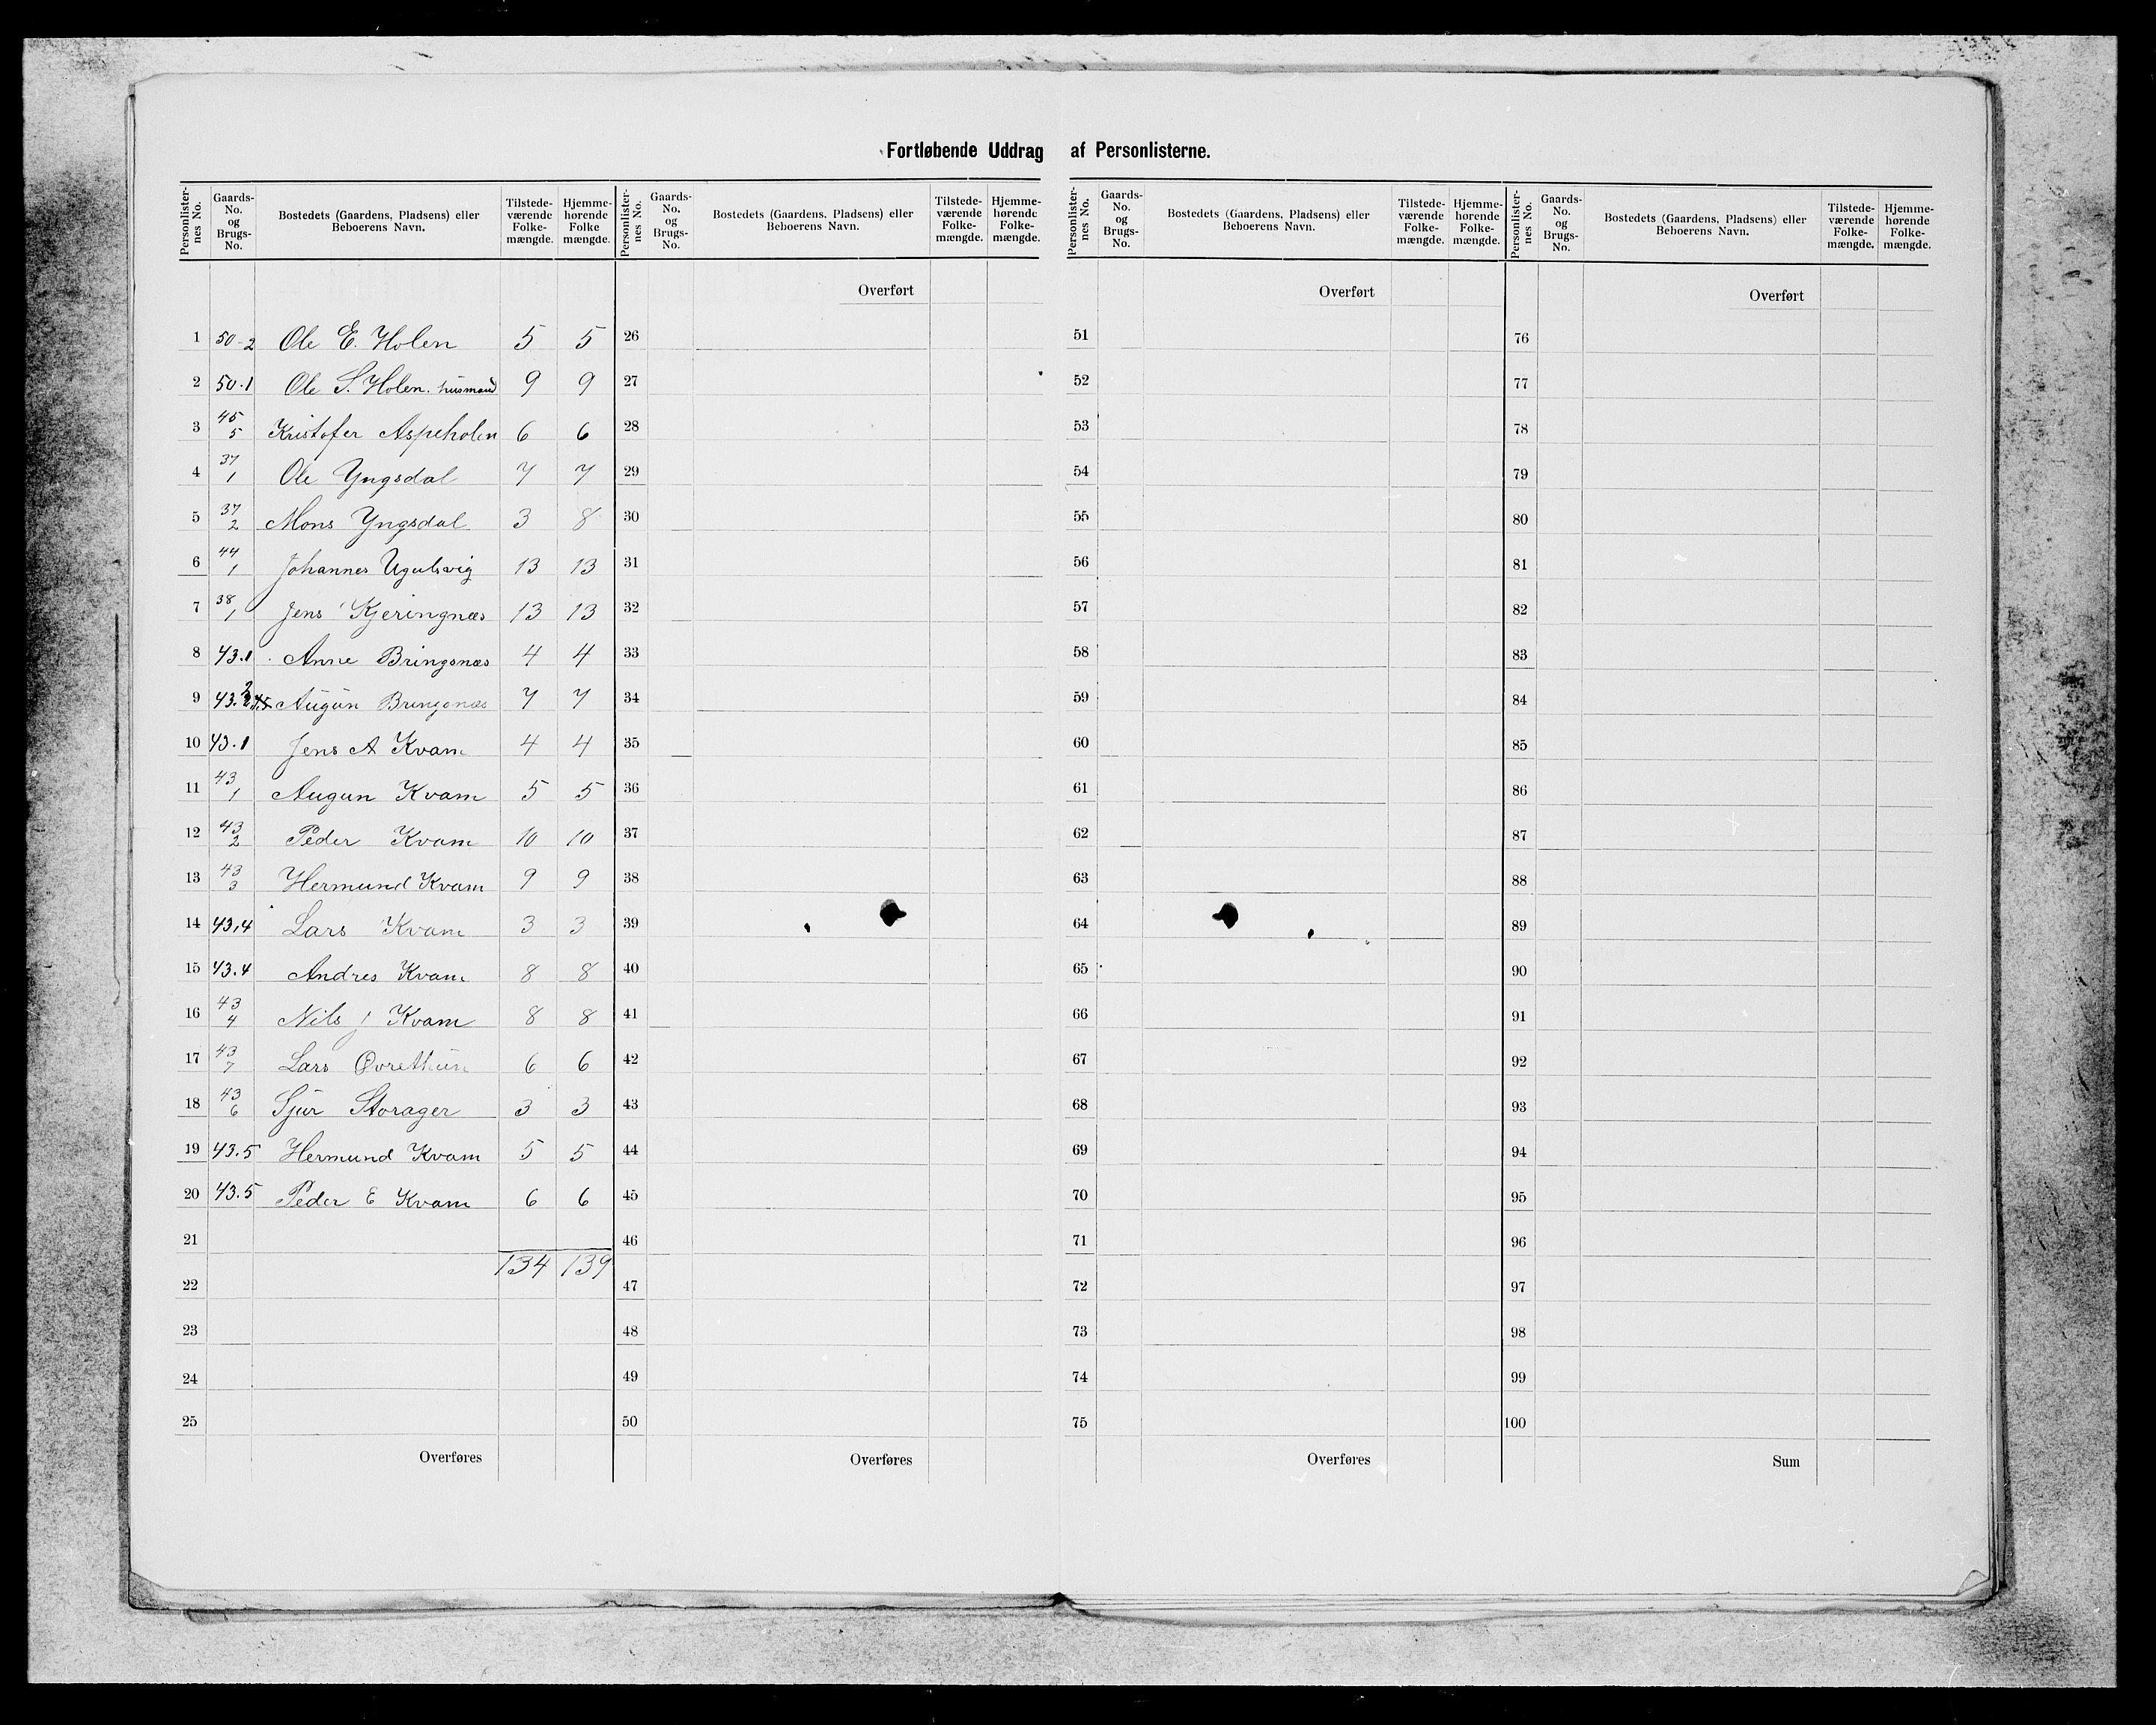 Fortløbende Uddrag af Personlisterne.
Personlister-nes No. Gaards-No. og Brugs-No. Bostedets (Gaardens, Pladsens) eller Beboerens Navn. Tilstede-værende Folke-mængde. Hjemme-hørende Folke mængde.
1 50-2 Ole E. Holen 5 5
2 50.1 Ole S. Holen. husmand 9 9
3 45 5 Kristofer Aspeholen 6 6
4 37 1 Ole Yngsdal 7 7
5 37 2 Mons Yngsdal 3 8
6 44 1 Johannes Ugulsvig 13 13
7 38 1 Jens Kjeringnæs 13 13
8 43.1 Anne Bringsnæs 4 4
9 43. Augun Bringsnæs 7 7
10 43.1 Jens A Kvam 4 4
11 43 1 Augun Kvam 5 5
12 43 2 Peder Kvam 10 10
13 43 3 Hermund Kvam 9 9
14 43,4 Lars Kvam 3 3
15 43.4 Andres Kvam 8 8
16 43 4 Nils J Kvam 8 8
17 43 7 Lars Øvrethun 6 6
18 43 6 Sjur Storager 3 3
19 43.5 Hermund Kvam 5 5
20 43.5 Peder E Kvam 6 6
21
134 139
22
23
24
25
Overføres
Personlister-nes No. Gaards-No. og Brugs-No. Bostedets (Gaardens, Pladsens) eller Beboerens Navn. Tilstede-værende Folke-mængde. Hjemme-hørende Folke-mængde.
Overført
26
27
28
29
30
31
32
33
34
35
36
37
38
39
40
41
42
43
44
45
46
47
48
49
50
Overføres
Personlister-nes No. Gaards-No. og Brugs-No. Bostedets (Gaardens, Pladsens) eller Beboerens Navn. Tilstede-værende Folke-mængde. Hjemme-hørende Folke-mængde.
Overført
51
52
53
54
55
56
57
58
59
60
61
62
63
64
65
66
67
68
69
70
71
72
73
74
75
Overføres
Personlister-nes No. Gaards-No. og Brugs-No. Bostedets (Gaardens, Pladsens) eller Beboerens Navn. Tilstede-værende Folke-mængde. Hjemme-hørende Folke-mængde.
Overført
76
77
78
79
80
81
82
83
84
85
86
87
88
89
90
91
92
93
94
95
96
97
98
99
100
Sum